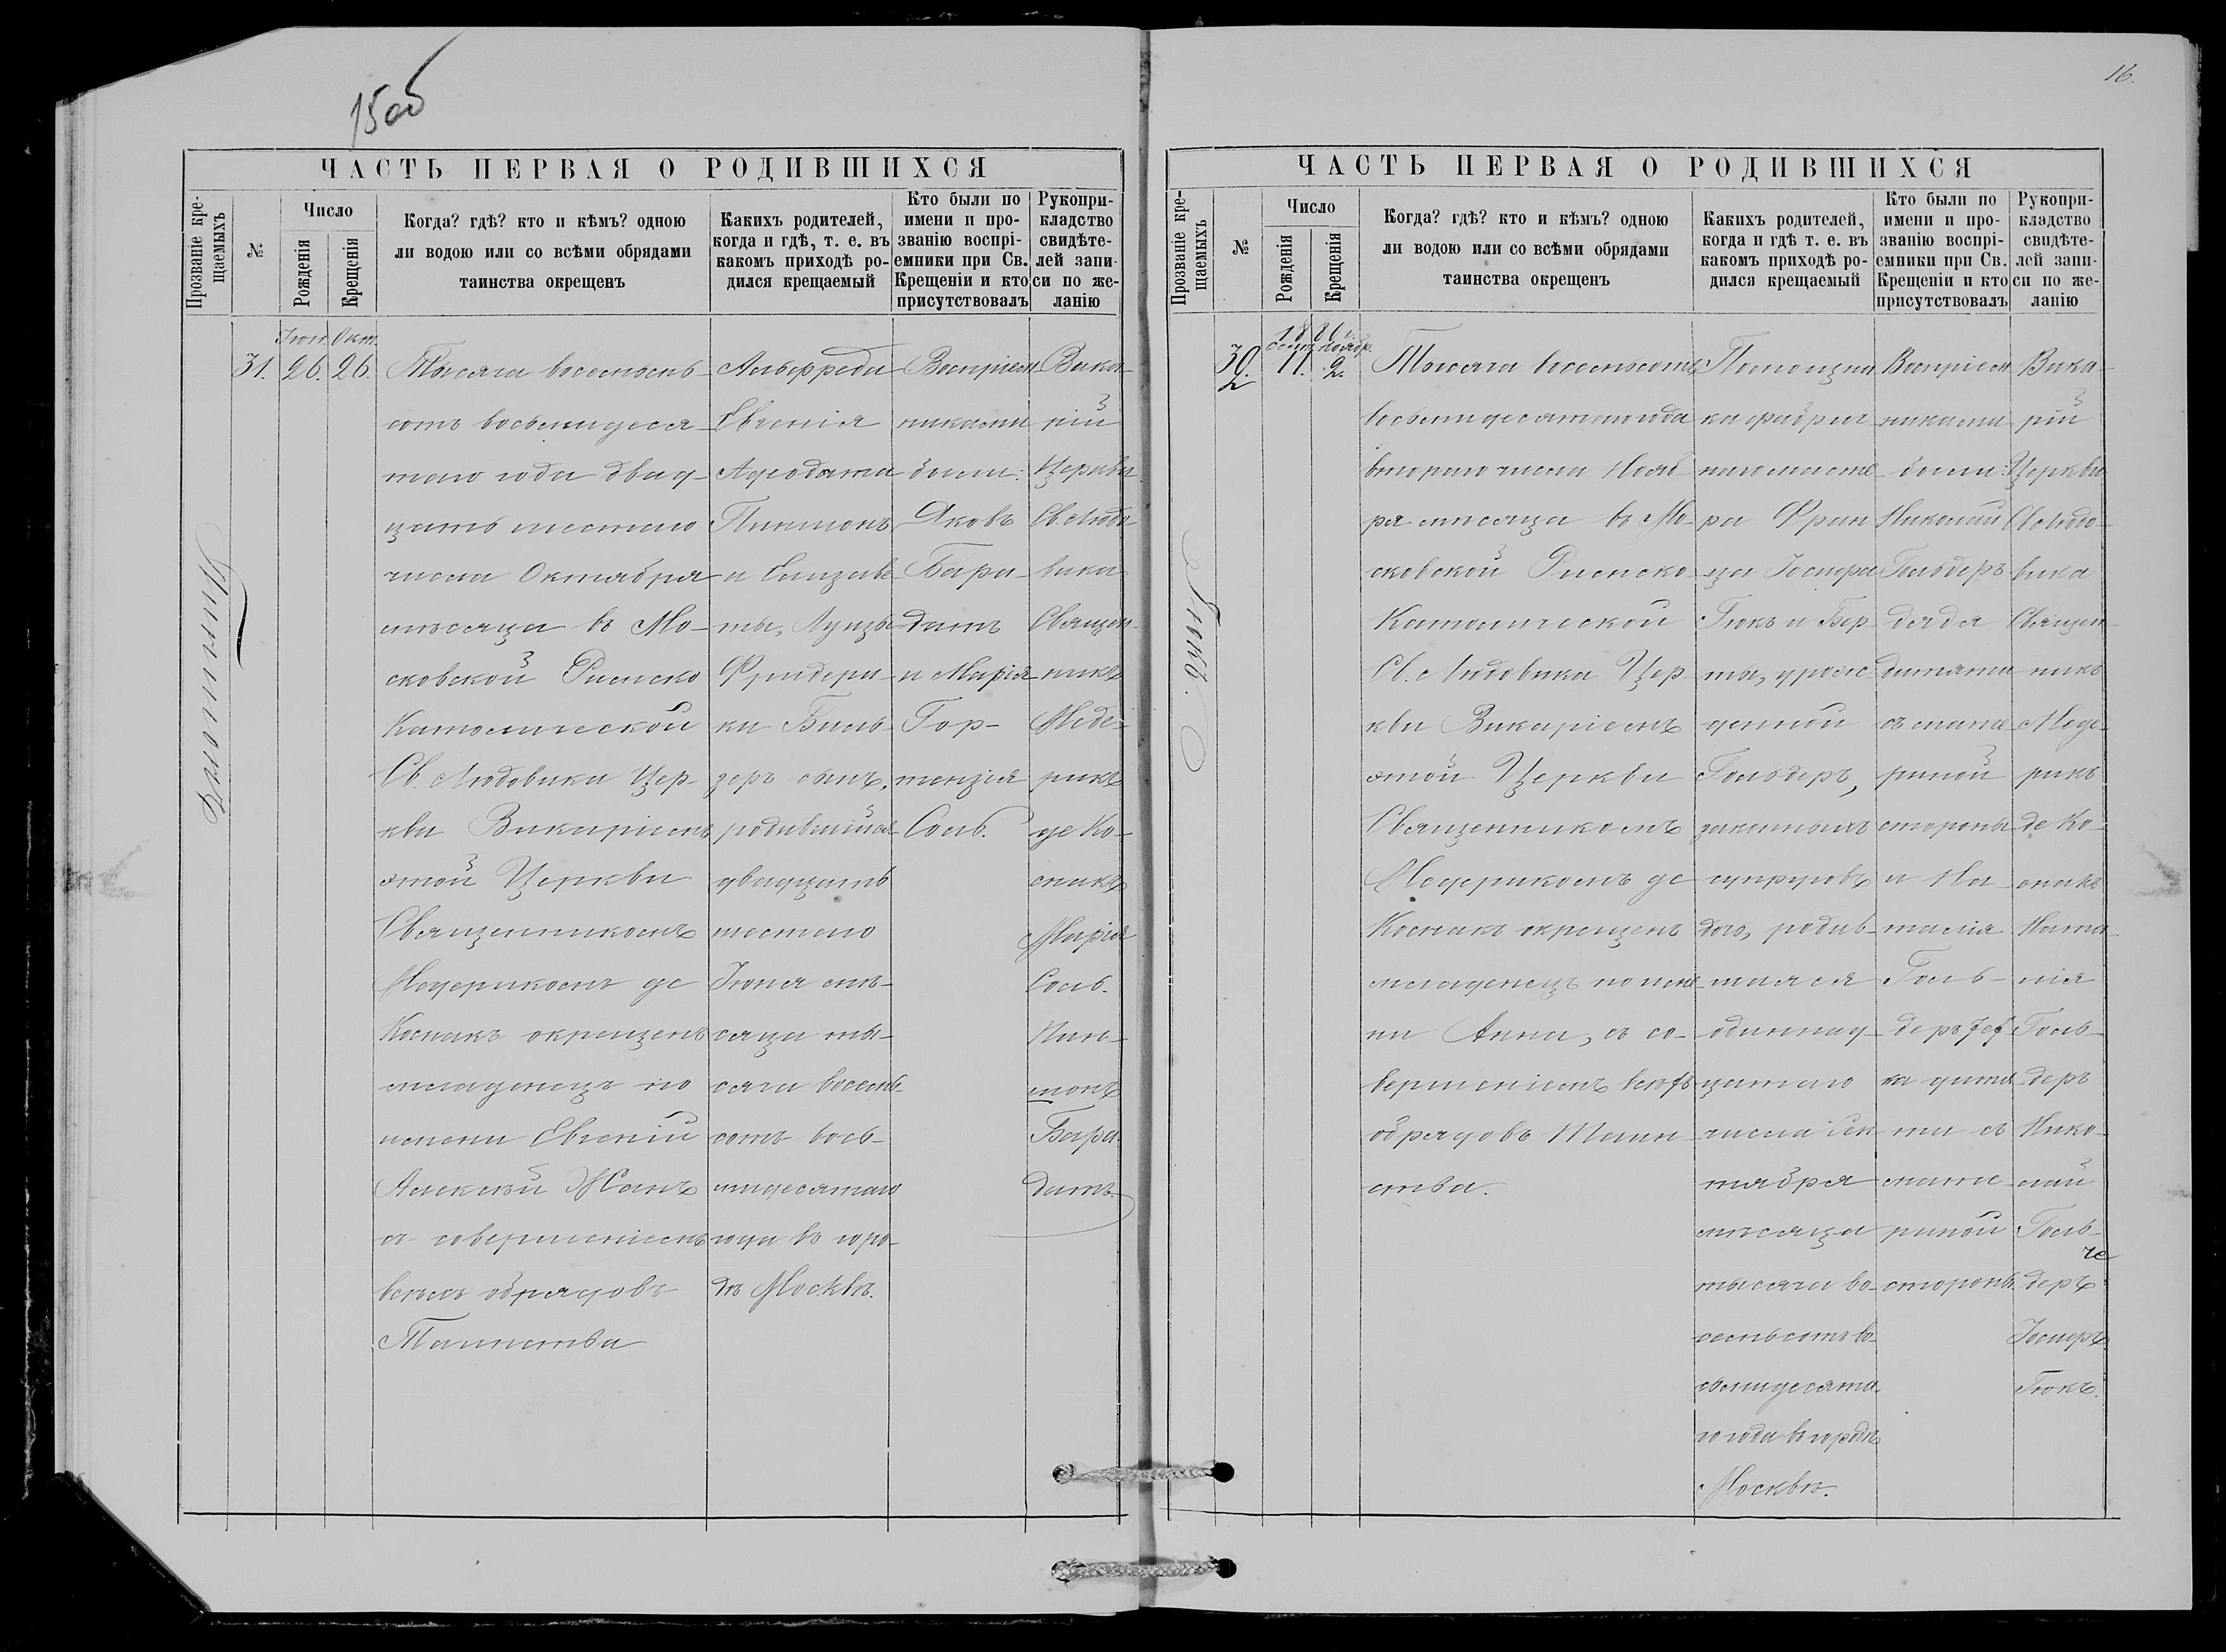 15об
ЧАСТЬ ПЕРВАЯ О РОДИВШИХСЯ
Прозваніе кре-
щаемыхъ
№
Число
Рожденія
Крещенія
Когда? гдѣ? кто и кѣмъ? одною
ли водою или со всѣми обрядами
таинства окрещенъ
Какихъ родителей,
когда и гдѣ, т. е. въ
какомъ приходѣ ро-
дился крещаемый
Кто были по
имени и про-
званію воспрі-
емники при Св.
Крещеніи и кто
присутствовалъ
Рукопри-
кладство
свидѣте-
лей запи-
си по же-
ланію
Іюн. Окт.
31. 26. 26.
Тысяча восемьсъ
сотъ восьмидеся
таго года двад-
цать шестаго
числа Октября
мѣсяца въ Мо-
сковской Римско
Католической
Св. Людовика Цер-
кви Викаріемъ
этой Церкви
Священникомъ
Медерикомъ де
Коснакъ окрещенъ
младенецъ по
имени Евгеній
Алексѣй Жанъ
съ совершеніемъ
всѣхъ обрядовъ
Таинства
Альфреда
Евгенія
Адеодата
и Елизаве-
ты, Луизы
Фридери-
ки Биль-
зеръ сынъ,
родившійся
двадцать
шестаго
Іюня мѣ-
сяца ты-
сяча восемь-
сотъ вось-
мидесятаго
года въ горо-
дѣ Москвѣ.
Воспріем-
никами
были:
Яковъ
Бара-
датъ
и Марія
Гор-
тензія
Соль.
Вика-
рій
Церкви
Св. Людо-
вика
Священ-
никъ
Меде-
рикъ
де Ко-
снакъ
Марія
Соль.
Бара
датъ
16.
ЧАСТЬ ПЕРВАЯ О РОДИВШИХСЯ
Прозваніе кре-
щаемыхъ
№
Число
Рожденія
Крещенія
Когда? гдѣ? кто и кѣмъ? одною
ли водою или со всѣми обрядами
таинства окрещенъ
Какихъ родителей,
когда и гдѣ т. е. въ
какомъ приходѣ ро-
дился крещаемый
Кто были по
имени и про-
званію воспрі-
емники при Св.
Крещеніи и кто
присутствовалъ
Рукопри-
кладство
свидѣте-
лей запи-
си по же-
ланію
Гюкъ.
Сент. Ноябр.
11. 2.
Тысяча восемьсотъ
восьмидесятаго года
втораго числа Нояб-
ря мѣсяца въ Мо-
сковской Римско-
Католической
Св. Людовика Цер
кви Викаріемъ
этой Церкви
Священникомъ
Медерикомъ де
Коснакъ окрещенъ
младенецъ по име
ни Анна, съ со-
вершеніемъ всѣхъ
обрядовъ Таин-
ства.
Потомцик
ка фабрич
наго масте
ра Фран
ца Іосифа
Гюкъ и Бер
ты, урож
денной
Гольдеръ,
законныхъ
супруговъ
дочь, родив-
шаяся
одиннад-
цатаго
числа Сен
тября
мѣсяца
тысяча во-
семьсотъ во-
сьмидесята
го года въ городѣ
Москвѣ.
Воспріем
никами
были:
Николай
Гольдеръ
дядя
дитяти
съ мате
риной
стороны
и На-
талія
Голь-
деръ
ка дитя
ти съ
мате
риной
стороны.
Вика-
рій
Церкви
Св Людо-
вика
Священ-
никъ
Меде-
рикъ
де Ко-
снакъ
Ната-
лія
Голь-
деръ
Нико-
лай
Голь-
деръ
Іосифъ
Гюкъ.